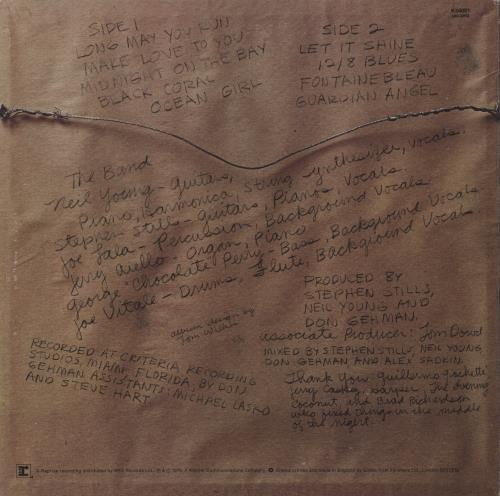 SIDE 1
LONG MAY YOU RUN
MAKE LOVE TO YOU
MIDNIGHT ON THE BAY
BLACK CORAL
OCEAN GIRL
SIDE 2
LET IT SHINE
12/8 BLUES
FONTAINEBLEAU
GUARDIAN ANGEL
The Band
Neil Young - Guitars,
Piano, Harmonica, String synthesizer, vocals.
Stephen Stills - Guitars, Pianos, Vocals.
Joe Lala - Percussion, Background Vocals
Jerry Aiello - Organ, Piano
George "Chocolate" Perry - Bass, Background Vocals
Joe Vitale - Drums, Flute, Background Vocals
album design by
Tom Wilkes
PRODUCED BY
STEPHEN STILLS,
NEIL YOUNG AND
DON GEHMAN.
Associate Producer: Tom Dowd
MIXED BY STEPHEN STILLS, NEIL YOUNG
DON GEHMAN AND ALEX SADKIN.
RECORDED AT CRITERIA RECORDING
STUDIOS, MIAMI FLORIDA, BY DON
GEHMAN ASSISTANTS: MICHAEL LASKO
AND STEVE HART
Thank You: Guillermo
Jerry The
Coconut, and Brad Richardson
who fixed things in the middle
of the night.